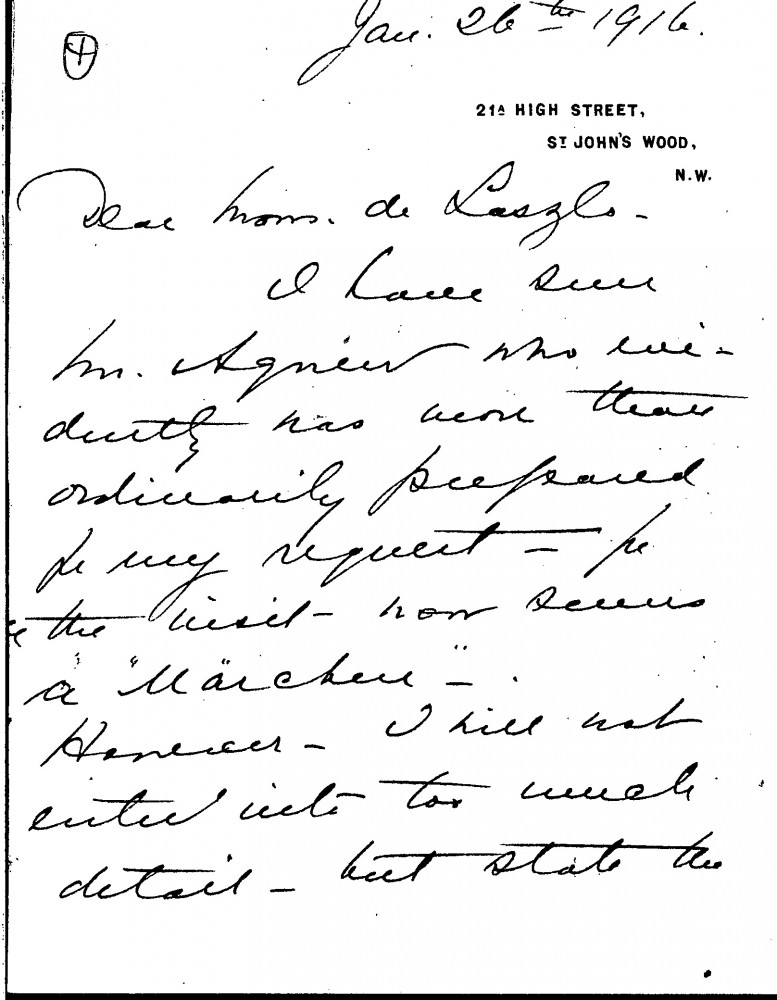 Jan. 26th 1916.
21A HIGH STREET,
ST JOHN'S WOOD,
N.W.
Dear Mons. de Laszlo -
I have seen
Mr. Agnew who evi-
dently was more than
ordinarily prepared
for my request - for
the visit - now seems
a "Märchen" -.
However - I will not
enter into too much
detail - but state the